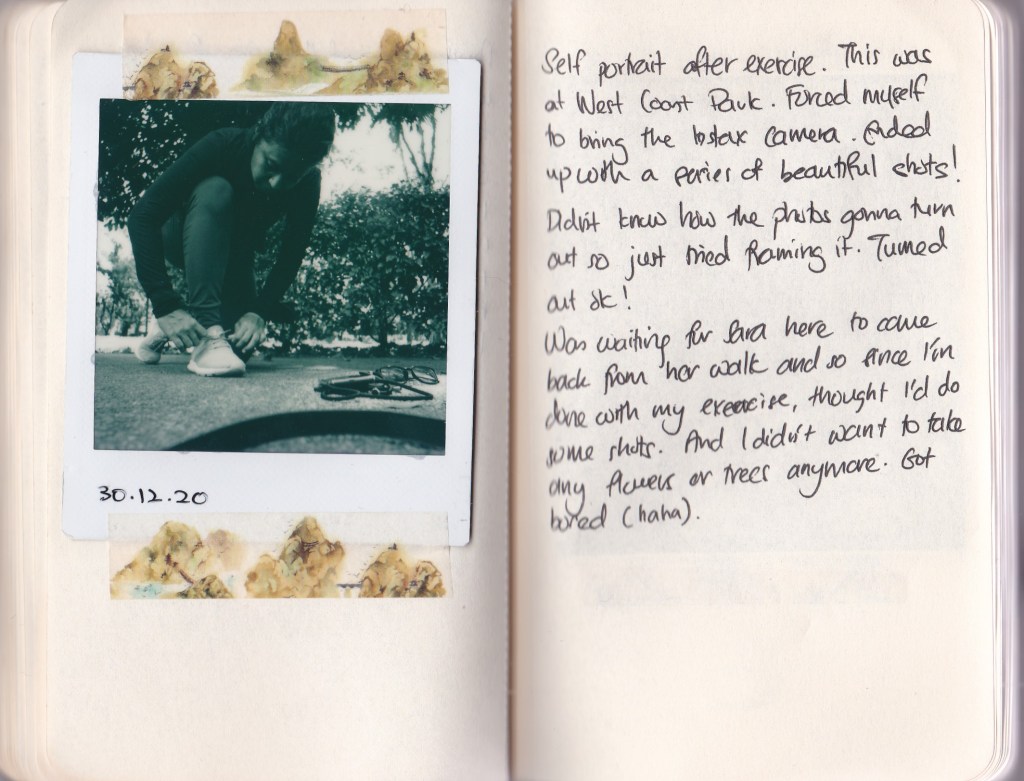 30.12.20
Self portrait after exercise. This was
at West Coast Park. Forced myself
to bring the Instax camera. Ended
up with a series of beautiful shots!
Didn't know how the photos gonna turn
out so just tried framing it. Turned
out ok!
Was waiting for Sara here to come
back from her walk and so since I'm
done with my exercise, thought I'd do
some shots. And I didn't want to take
any flowers or trees anymore. Got
bored (haha).